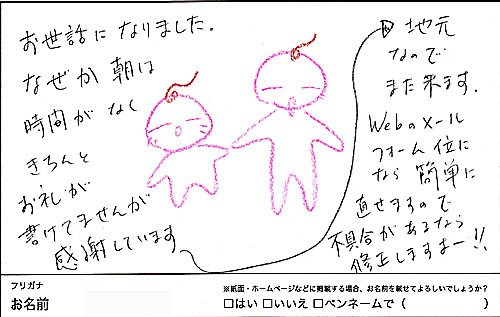 お世話になりました。
なぜか朝は
時間がなく
きちんと
お礼が
書けてませんが
感謝しています
地元
なので
また来ます.
Webのメール
フォーム位に
なら簡単に
直せますので
不具合があるなら
修正しますよー!!
フリガナ
お名前
※紙面・ホームページなどに掲載する場合、お名前を載せてよろしいでしょうか?
□はい □いいえ □ペンネームで( )